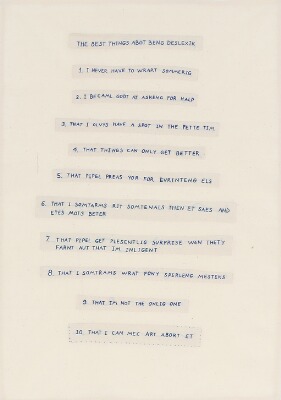 THE BEST THINGS ABOT BENG DESLEXIK
1. I NEVER HAVE TO WRART SOMMERIG
2. I BECAML GOOT AT ASKENG FOR HALP
3. THAT I OLVYS HAVE A SPOT IN THE PETTE TIM
4. THAT THINGS CAN ONLY GET BETTER
5. THAT PIPEL PREAS YOR FOR EVRINTENG ELS
6. THAT I SOMTARMS RIT SOMTENALS THEN ET SAES AND
ETES MOTS BETER
7. THAT PIPEL GET PLESENTLIG SURPRISE WAN THETY
FARNT AUT THAT IM INLIGENT
8. THAT I SOMTRAMS WRAT FONY SPERLENG MESTEKS
9. THAT IM NOT THE ONLIG ONE
10. THAT I CAN MEC ART ABORT ET